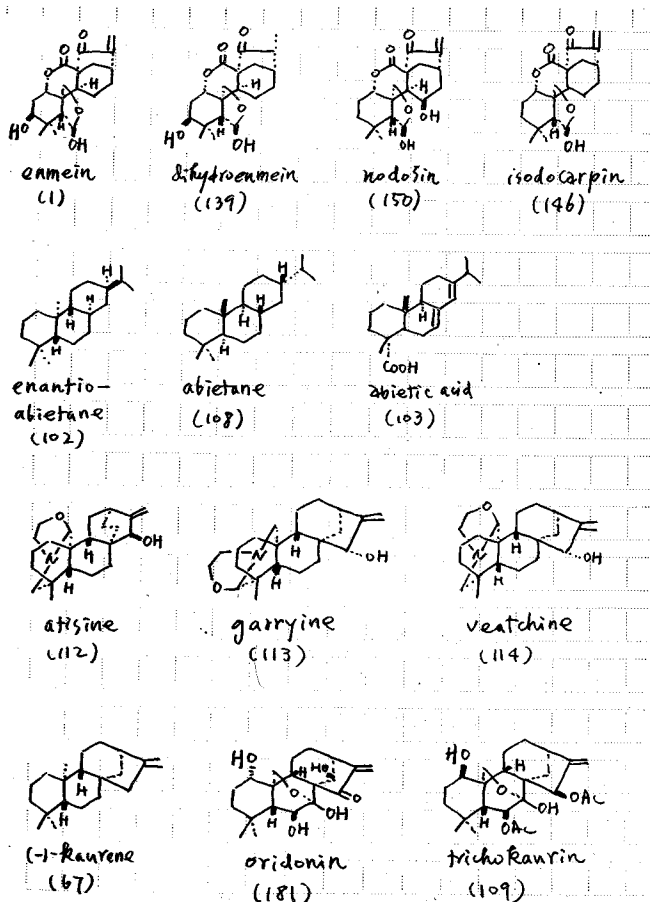 enmein
(1)
dihydroenmein
(139)
nodosin
(150)
isodocarpin
(146)
enantio-
abietane
(102)
abietane
(108)
abietic acid
(103)
atisine
(112)
garryine
(113)
veatchine
(114)
(-)-kaurene
(67)
oridonin
(181)
trichokaurin
(109)